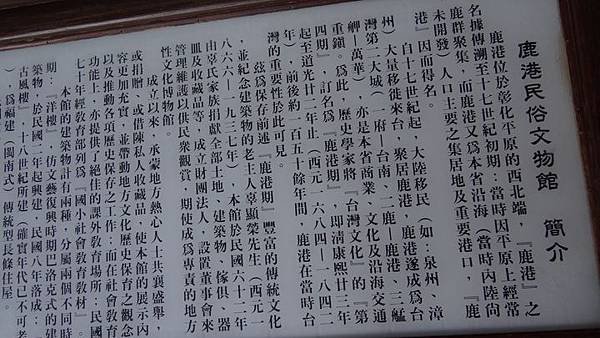 鹿港民俗文物館　簡介
鹿港位於彰化平原的西北端，『鹿港』之
名據傳溯至十七世紀初期：當時因平原上經常
鹿群聚集，而鹿港又為本省沿海（當時內陸尚
未開發）人口主要之集居地及重要港口，『鹿
港』因而得名。
自十七世紀起，大陸移民（如：泉州、漳
州）大量移徙來台，聚居鹿港，鹿港遂成為台
灣第二大城（一府—台南、二鹿—鹿港、三艋
舺—萬華）亦是本省商業、文化及沿海交通
重鎮。為此，歷史學家將『台灣文化』的『第
四期』，訂名為『鹿港期』，即清康熙廿三年
起至道光廿二年止（西元一六八四—一八四二
年），前後約一百五十餘年間，鹿港在當時台
灣的重要性於此可見。
茲為保存前述『鹿港期』豐富的傳統文化
，並紀念建築物的老主人辜顯榮先生（西元一
八六六—一九三七年），本館於民國六十二年
由辜氏家族捐獻全部土地、建築物、傢俱、器
皿及收藏品等，成立財團法人，設置董事會來
管理維護以供民眾觀賞，期使成為專責的地方
性文化博物館。
成立以來，承蒙地方熱心人士共襄盛舉，
或捐贈、或借陳私人收藏品，使本館的展示內
容更加充實，並帶動地方文化歷史保育之觀念
以及推動各項歷史保存之工作；而在社會教育
功能上，亦提供了絕佳的課外教育場所：民國
七十年經教育部列為『國小社會教育教材』。
本館的建築物計有兩種，分屬兩個不同時
期：『洋樓』，仿文藝復興時期巴洛克式的建
築物，於民國二年起興建，民國八年落成；『
古風樓』，十八世紀所建（確實年代已不可考
），為福建（閩南式）傳統型長條住屋。